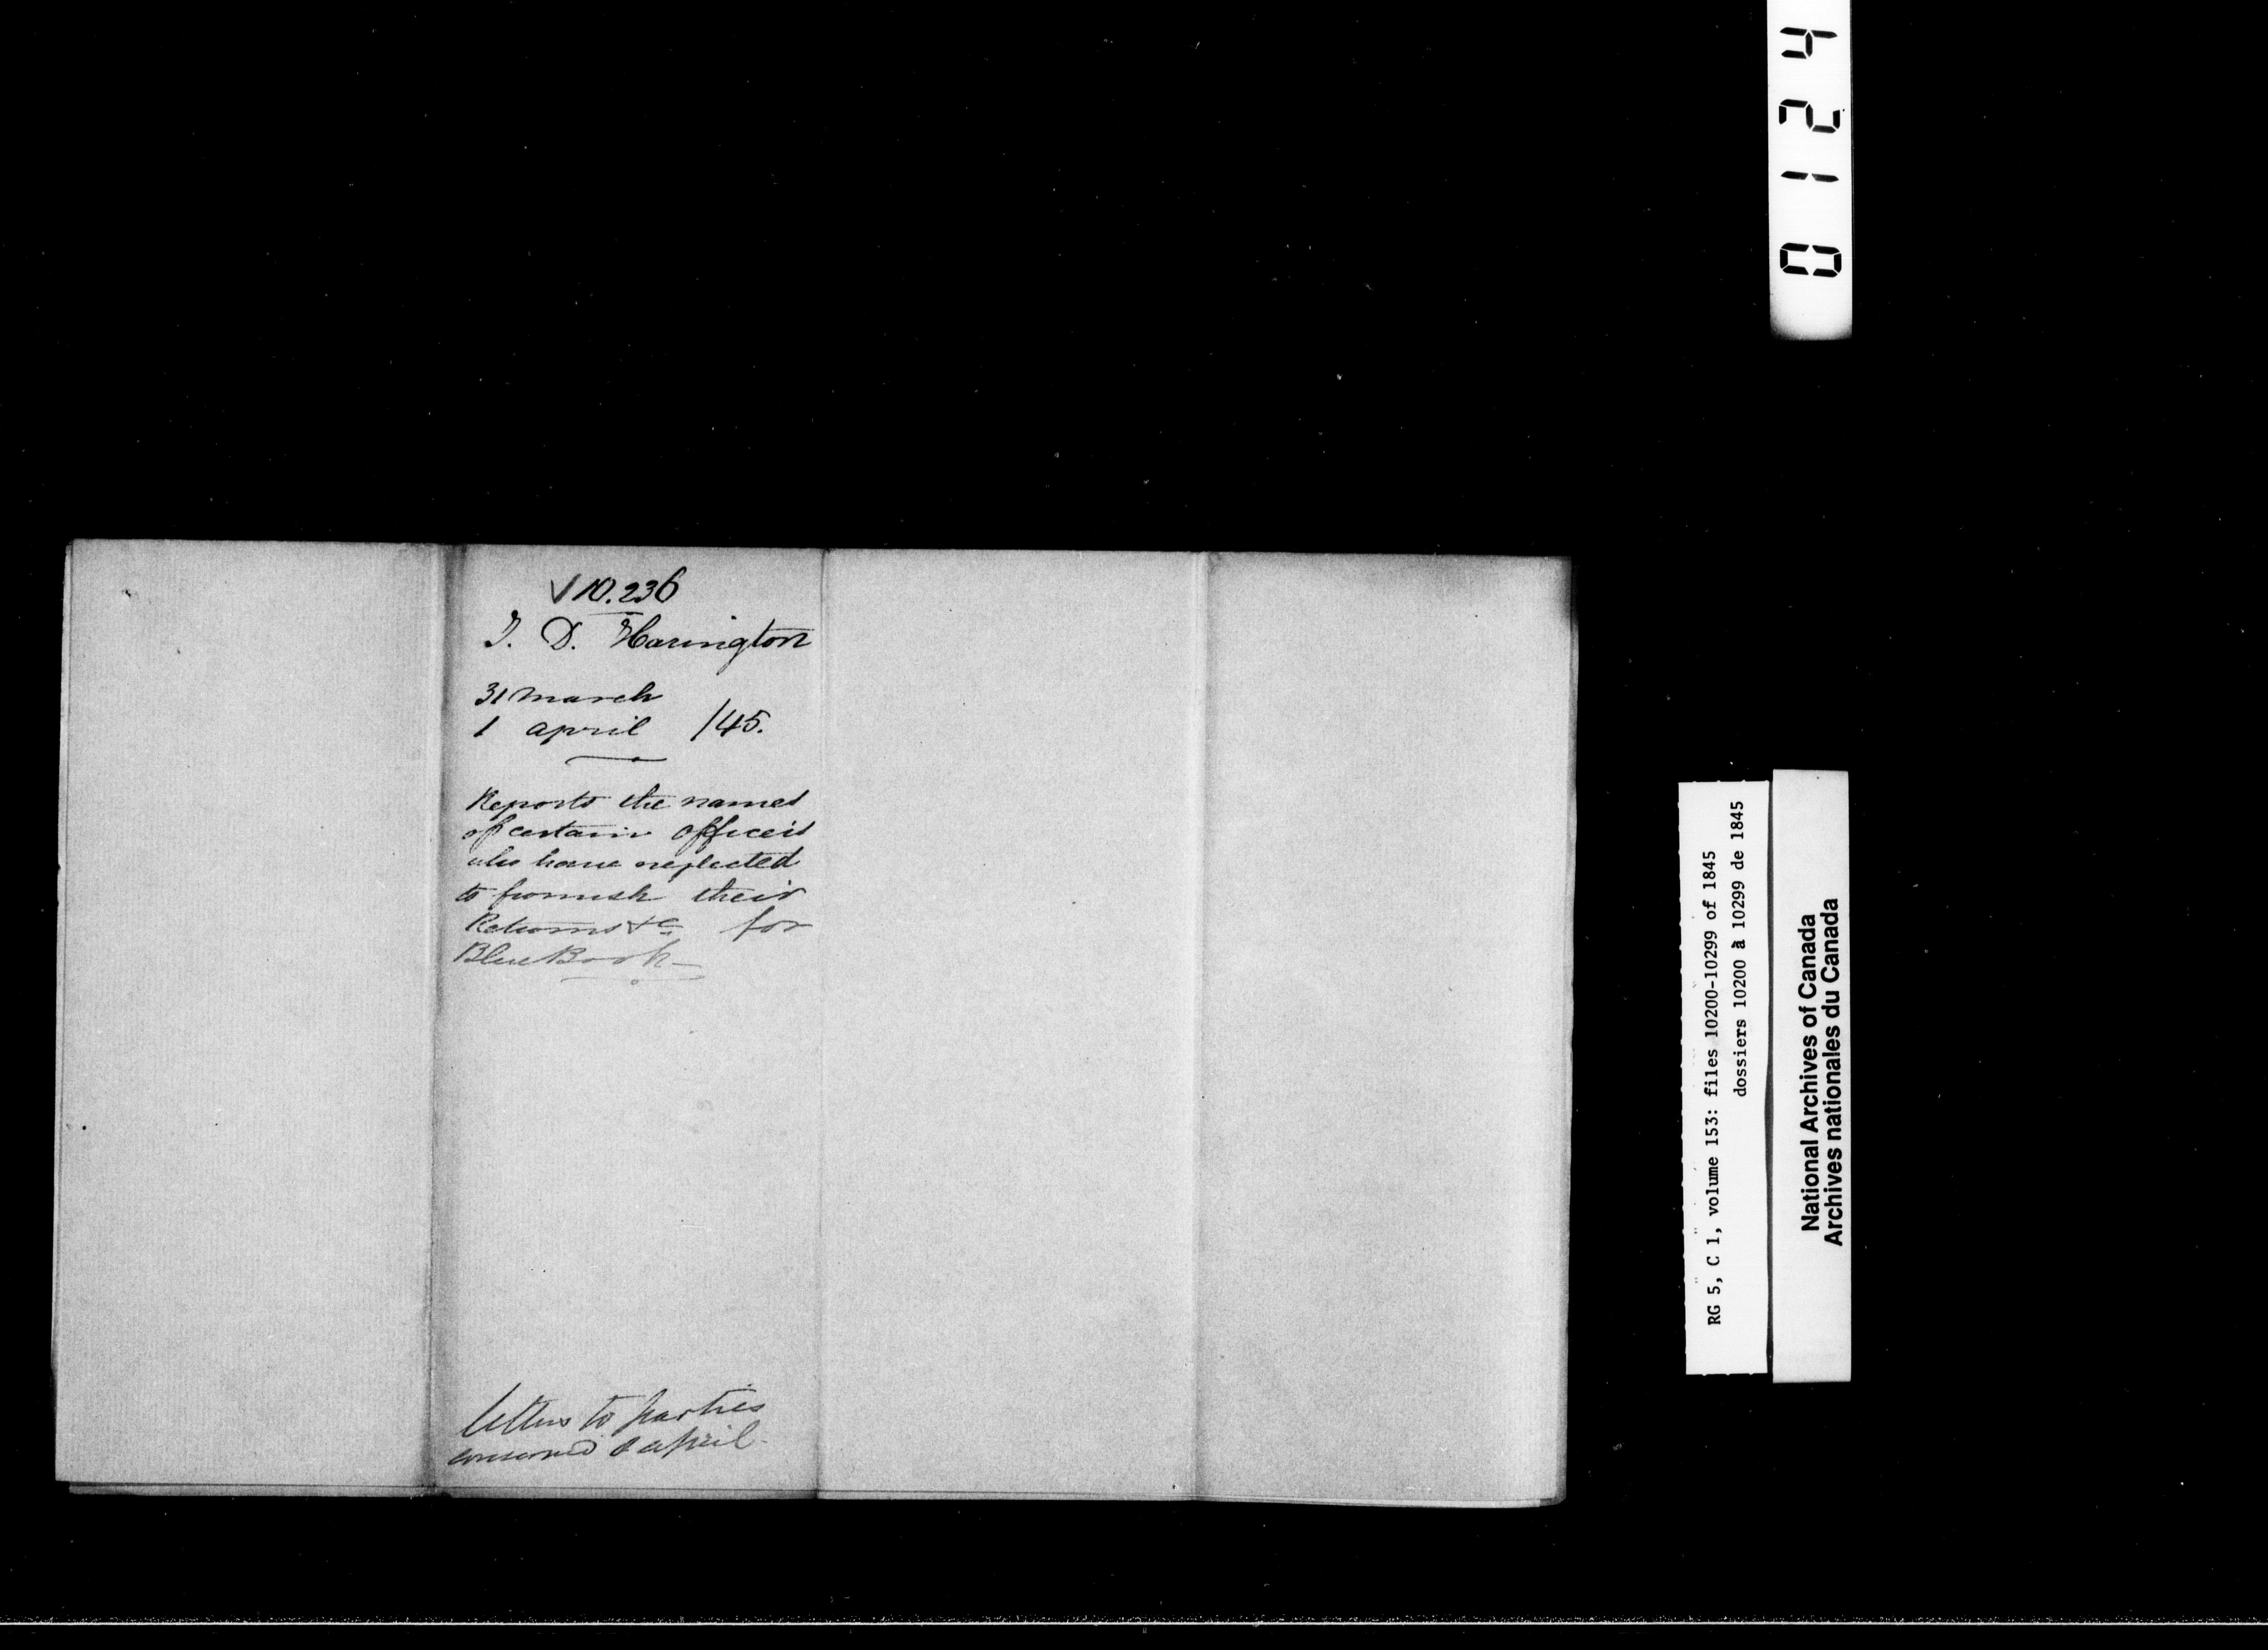 √10.236
T. D. Harington
31 March
1 april /45.
Reports the names
of certain officers
who have neglected
to furnish their
Returns &c for
Blue Book—
letters to parties
concerned april.
0124
RG 5, C 1, volume 153: files 10200-10299 of 1845
dossiers 10200 à 10299 de 1845
National Archives of Canada
Archives nationales du Canada